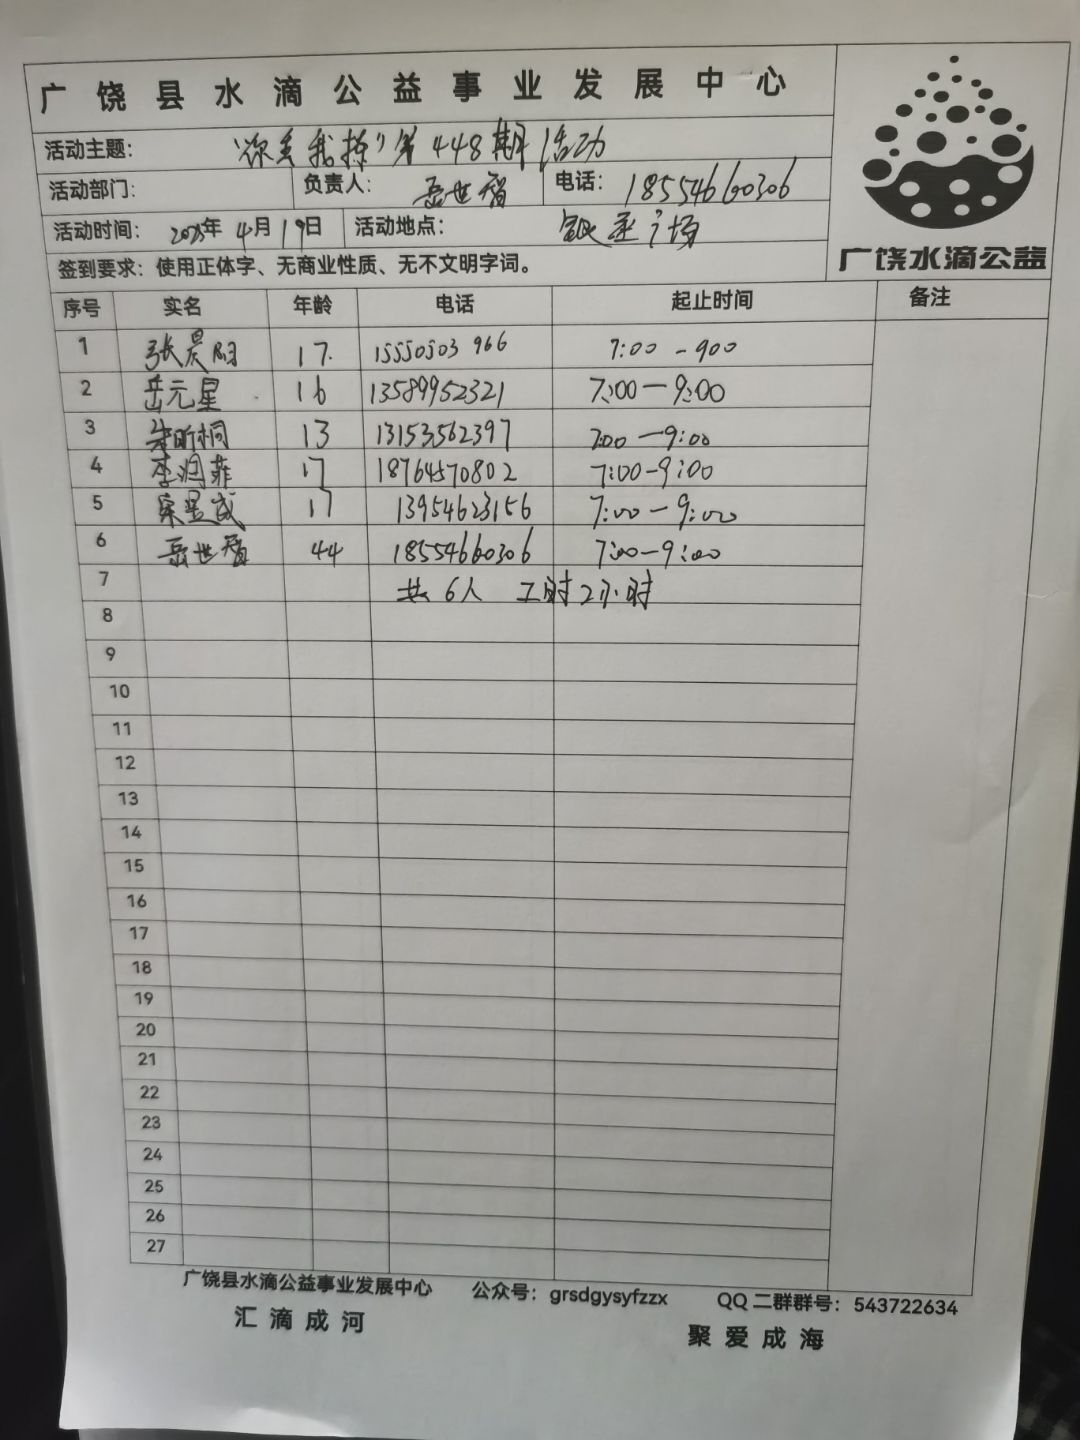 广饶县水滴公益事业发展中心
活动主题: "你丢我捡"第448期活动
活动部门: 负责人: 岳世智 电话: 18554660306
活动时间: 2025年4月19日 活动地点: 银座广场
广饶水滴公益
签到要求: 使用正体字、无商业性质、无不文明字词。
序号 实名 年龄 电话 起止时间 备注
1 张晨阳 17. 15550503966 7:00-900
2 岳元星 16 13589952321 7:00-9:00
3 朱昕桐 13 13153562397 7:00-9:00
4 李润菲 17 18764570802 7:00-9:00
5 宋昱成 17 13954623156 7:00-9:00
6 岳世智 44 18554660306 7:00-9:00
7 共6人 工时2小时
8
9
10
11
12
13
14
15
16
17
18
19
20
21
22
23
24
25
26
27
广饶县水滴公益事业发展中心 公众号: grsdgysyfzzx QQ二群群号: 543722634
汇滴成河 聚爱成海